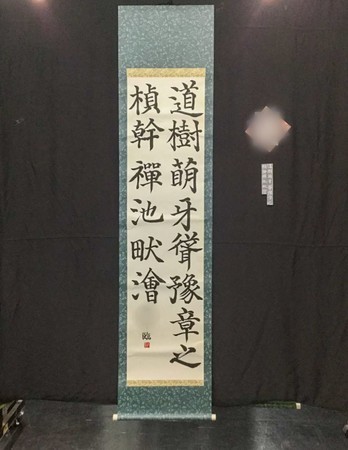 道樹萌牙聳豫章之
楨幹禪池畎澮